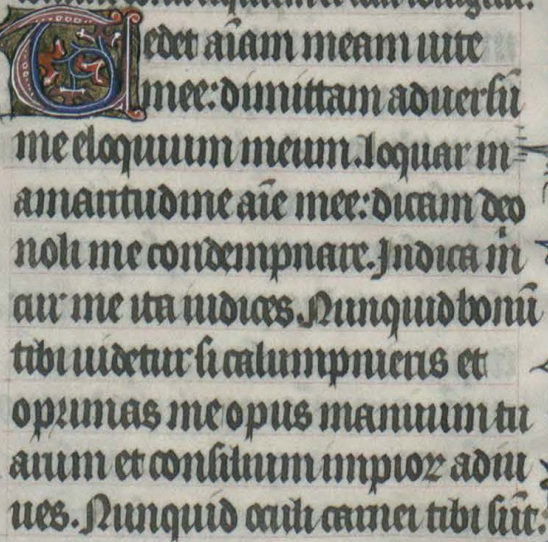 Tedet aīam meam uite
mee: dimittam aduersū
me eloquium meum. loquar in
amaritudine aīe mee: dicam deo
noli me condempnare. Indica m̄
cur me ita iudices. Nunquid bonū
tibi uidetur si calumpnieris et
oprimas me opus manuum tu
arum et consilium impioꝝ adiu
ues. Nunquid oculi carnei tibi sūt: